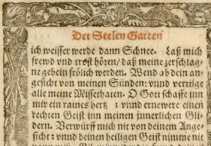 Der Seelen Garten
ich weisser werde dann Schnee. Laß mich
frewd vnd trost hören/ daß meine zerschlag-
ne gebein frölich werden. Wend ab dein an-
gesicht von meinen Sünden: vnd vertilge
alle meine Missethaten. O Gott schaffe inn
mir ein raines hertz : vnnd ernewere einen
rechten Geist inn meinen innerlichen Gli-
dern. Verwürff mich nit von deinem Ange-
sicht : vnnd deinen heiligen Geist nimme nit